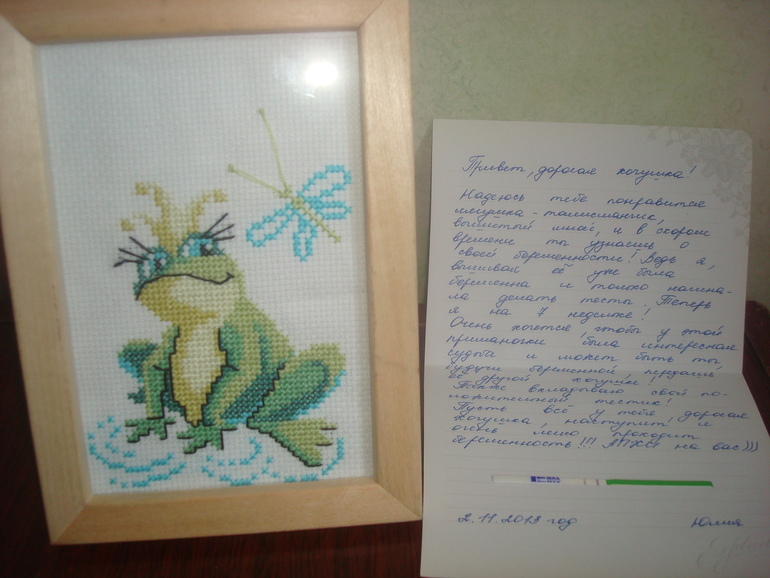 Привет, дорогая хотушка!
Надеюсь тебе понравится
лягушка-талисманчик,
вышитый мной, и в скором
времени ты узнаешь о
своей беременности! Ведь я,
вышивая её уже была
беременна и только начина-
ла делать тесты. Теперь
я на 7 недельке!
Очень хочется, чтобы у этой
приманочки была интересная
судьба и может быть ты,
будучи беременной, передашь
её другой хотушке!
Также вкладываю свой по-
ложительный тестик!
Пусть всё у тебя, дорогая
хотушка, наступит и
очень легко проходит
беременность!!! АПЧХИ на вас)))
2.11.2013 год
Юлия